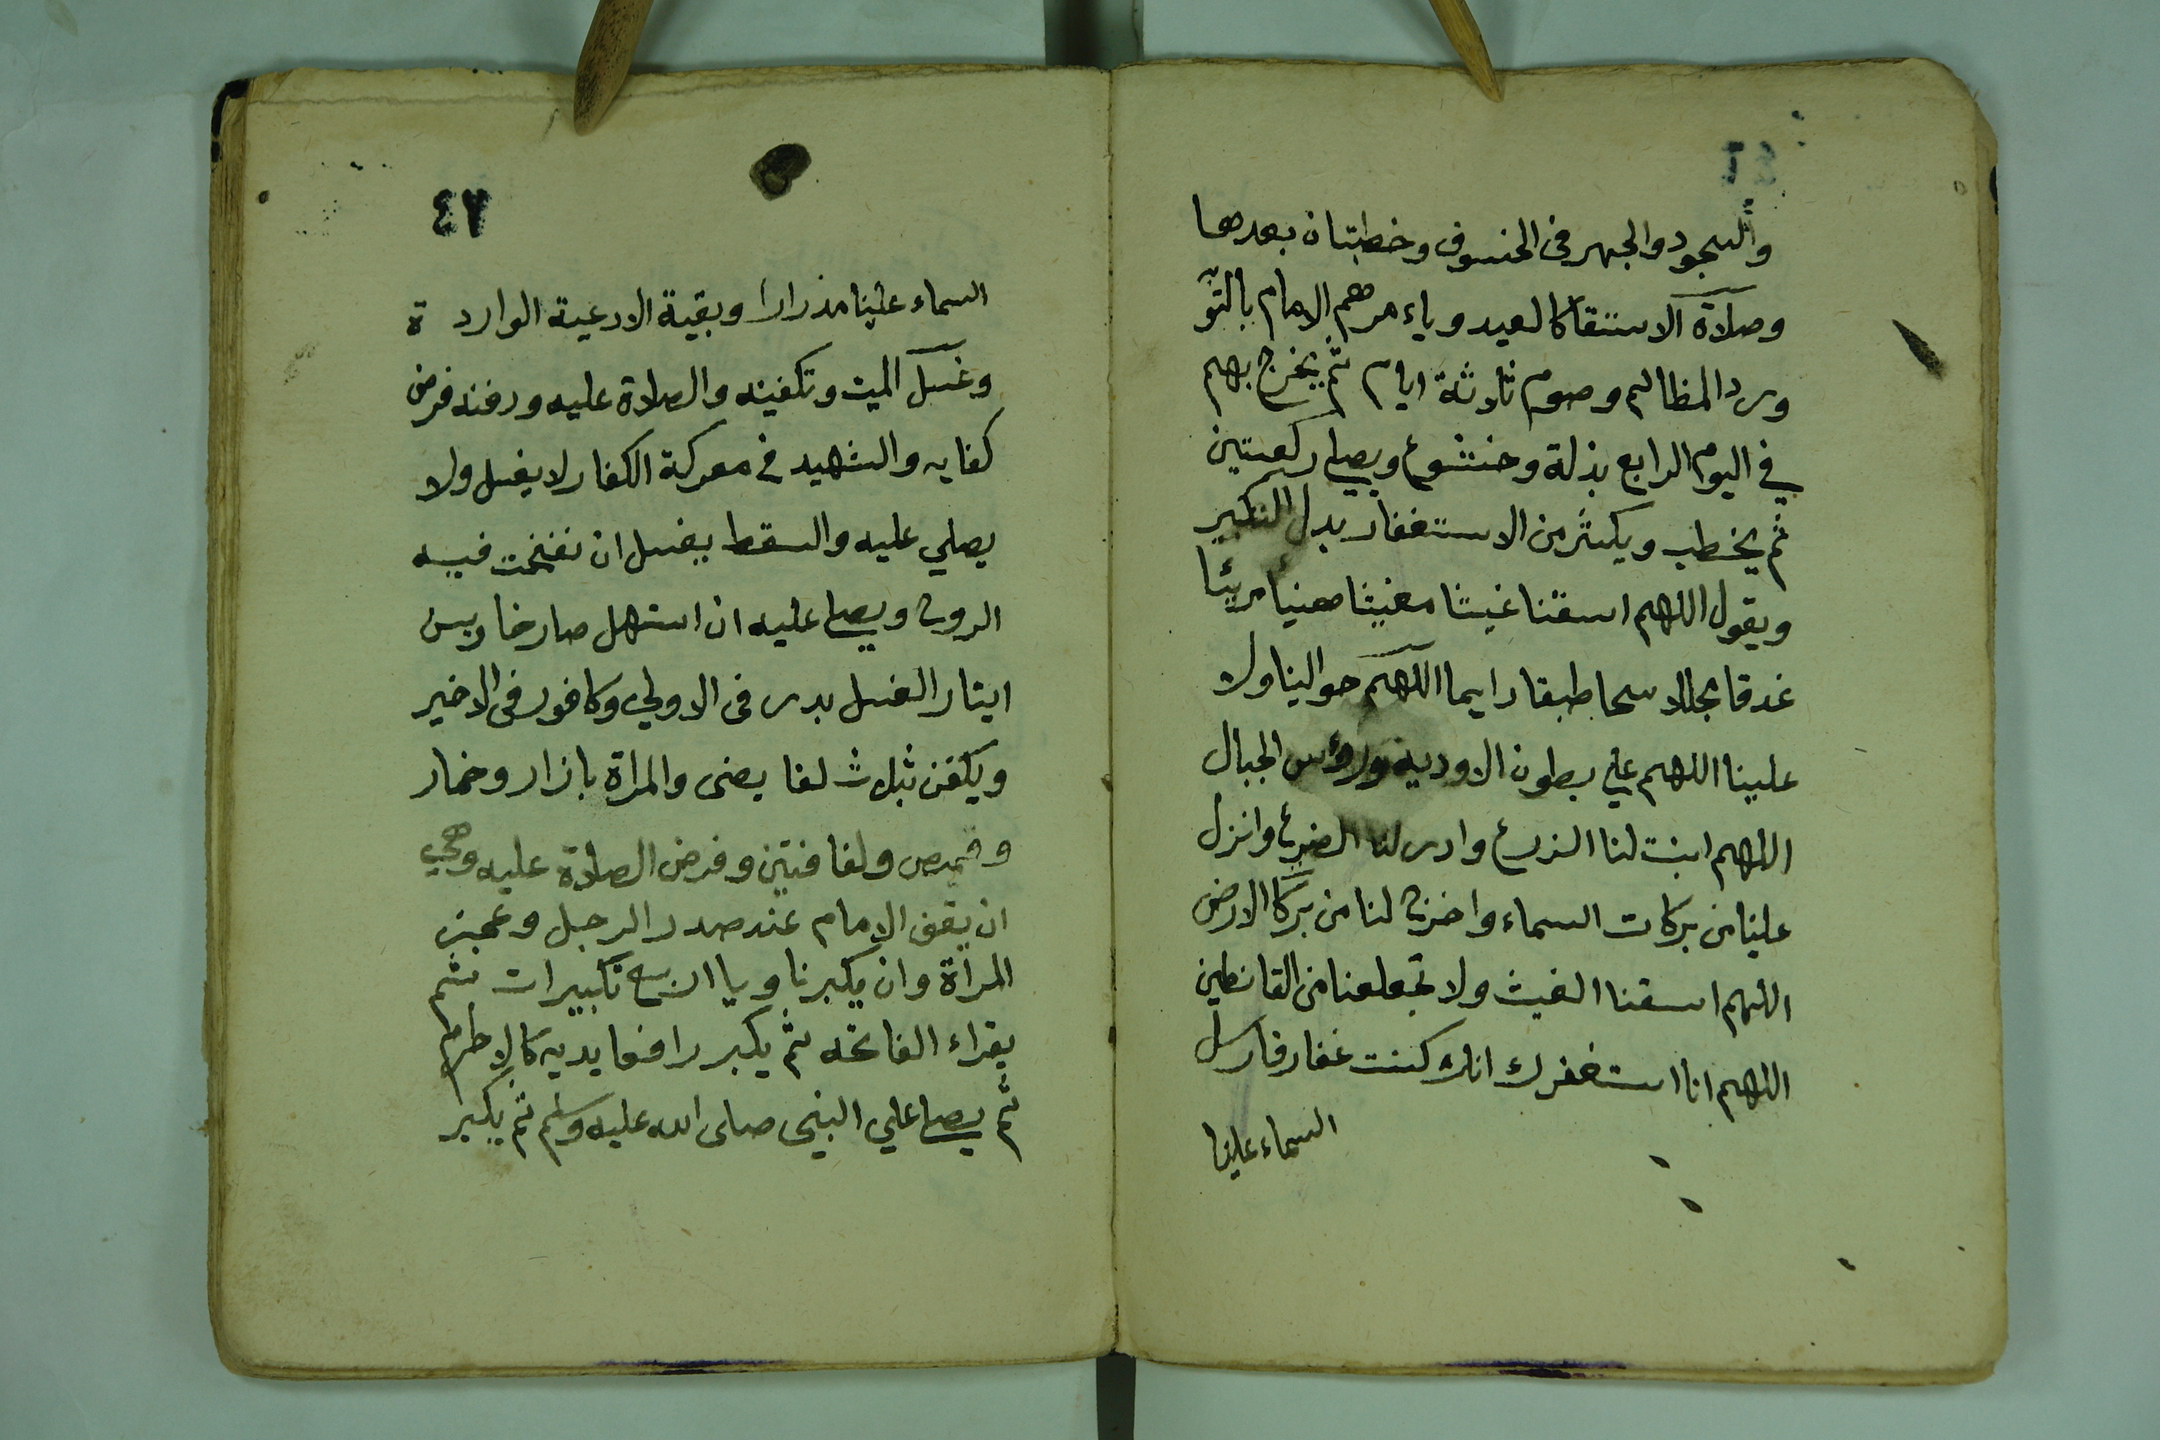 ٤٦
والسجود والجهر فى الخسوف وخطبتان بعدها
وصلاة الاستسقا كالعيد وياءمرهم الامام بالتوبه
ورد المظالم وصوم ثلاثة ايام ثم يخرج بهم
في اليوم الرابع بذلة وخشوع ويصلي ركعتين
ثم يخطب ويكثر من الاستغفار بدل التكبير
ويقول اللهم اسقنا غيثا مغيثا هنيئا مريئا
غدقا مجللا سحا طبقا دايما اللهم حوالينا ولا
علينا اللهم علي بطون الاودية ورؤس الجبال
اللهم انبت لنا الزرع وادر لنا الضرع وانزل
علينا من بركات السماء واخرج لنا من بركا الارض
اللهم اسقنا الغيث ولا تجعلعنا من القانطين
اللهم انا استغفرك انك كنت غفارفارسل
السماء علينا
٤٧
السماء علينا مذرارا وبقية الادعية الواردة
وغسل الميت وتكفينه والصلاة عليه ودفنه فرض
كفايه والشهيد في معركة الكفار لا يغسل ولا
يصلي عليه والسقط يغسل ان نفخت فيه
الروح ويصلي عليه ان استهل صارخا ويسن
ايتار الغسل بدر فى الاولي وكافور فى الاخير
ويكفن بثلاث لفا يضى والمراة بازار وخمار
وقميص ولفافتين وفرض الصلاة عليه وهي
ان يقف الامام عند صدر الرجل وعجيز
المرأة وان يكبر ناويا اربع تكبيرات ثم
يقراء الفاتحه ثم يكبر رافعا يديه كالاحرام
ثم يصلي علي النبى صلى الله عليه وسلم ثم يكبر